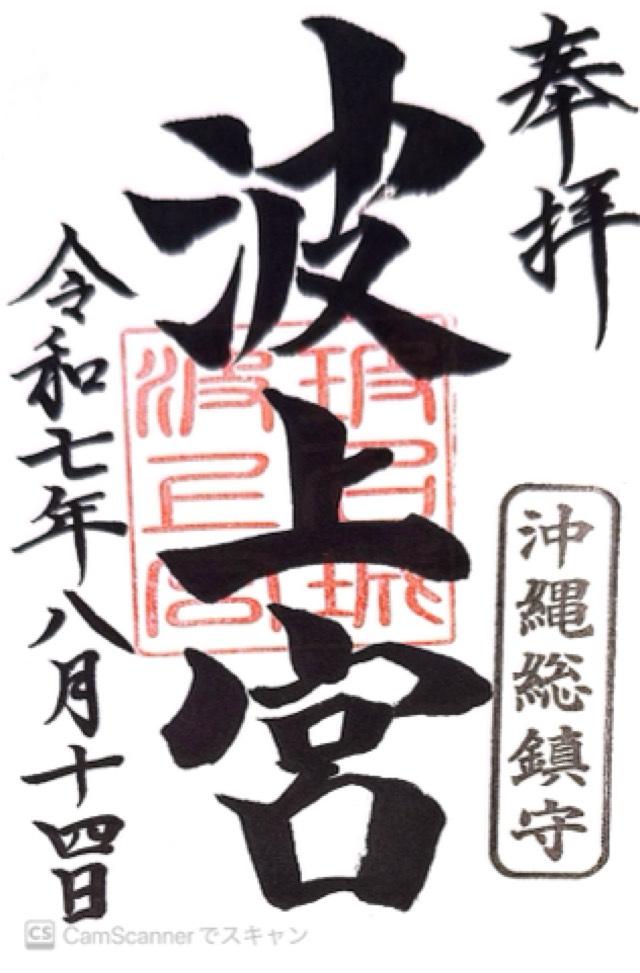 奉拝
沖縄総鎮守
波上宮
波上宮
令和七年八月十四日
CS CamScannerでスキャン